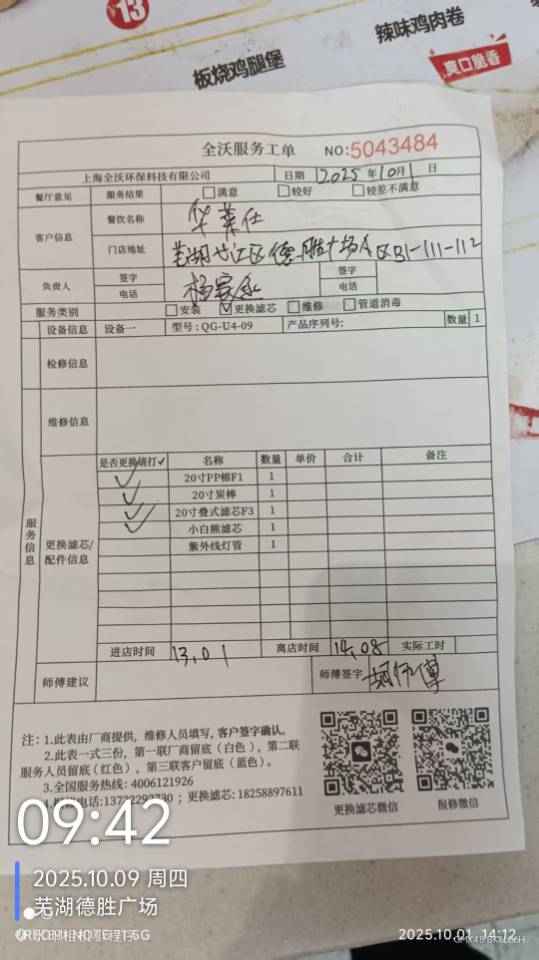 13
辣味鸡肉卷
板烧鸡腿堡
爽口脆香
全沃服务工单 NO:5043484
上海全沃环保科技有限公司 日期 2025 年 10月1 日
餐厅意见 服务结果 满意 较好 较差不满意
客户信息 餐饮名称 华莱仕
门店地址 芜湖 江区德胜广场A区B1-111-112
负责人 签字 签字
电话 电话
服务类别 安装 更换滤芯 维修 管道消毒
设备信息 设备一 型号:QG-U4-09 产品序列号: 数量 1
检修信息
维修信息
服务信息
更换滤芯/配件信息
是否更换请打✓ 名称 数量 单价 合计 备注
✓ 20寸PP棉F1 1
✓ 20寸炭棒 1
✓ 20寸叠式滤芯F3 1
✓ 小白熊滤芯 1
紫外线灯管 1
进店时间 13.01 离店时间 14.08 实际工时
师傅建议 师傅签字
注:1.此表由厂商提供,维修人员填写,客户签字确认。
2.此表一式三份,第一联厂商留底(白色),第二联
服务人员留底(红色),第三联客户留底(蓝色)。
3.全国服务热线:4006121926
电话:13732292730 ;更换滤芯:18258897611
更换滤芯微信 报修微信
09:42
2025.10.09 周四
芜湖德胜广场
2025.10.01 14:12